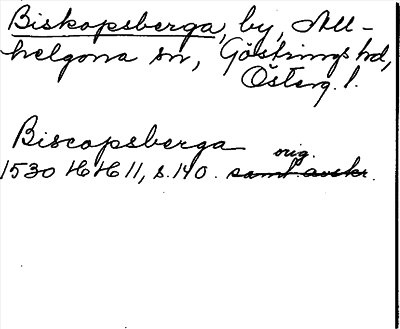 Biskopsberga, by, All-
helgona sn, Göstrings hd,
Österg. l.
Biscopsberga
orig.
1530 HH 11, s. 140. samt avskr.